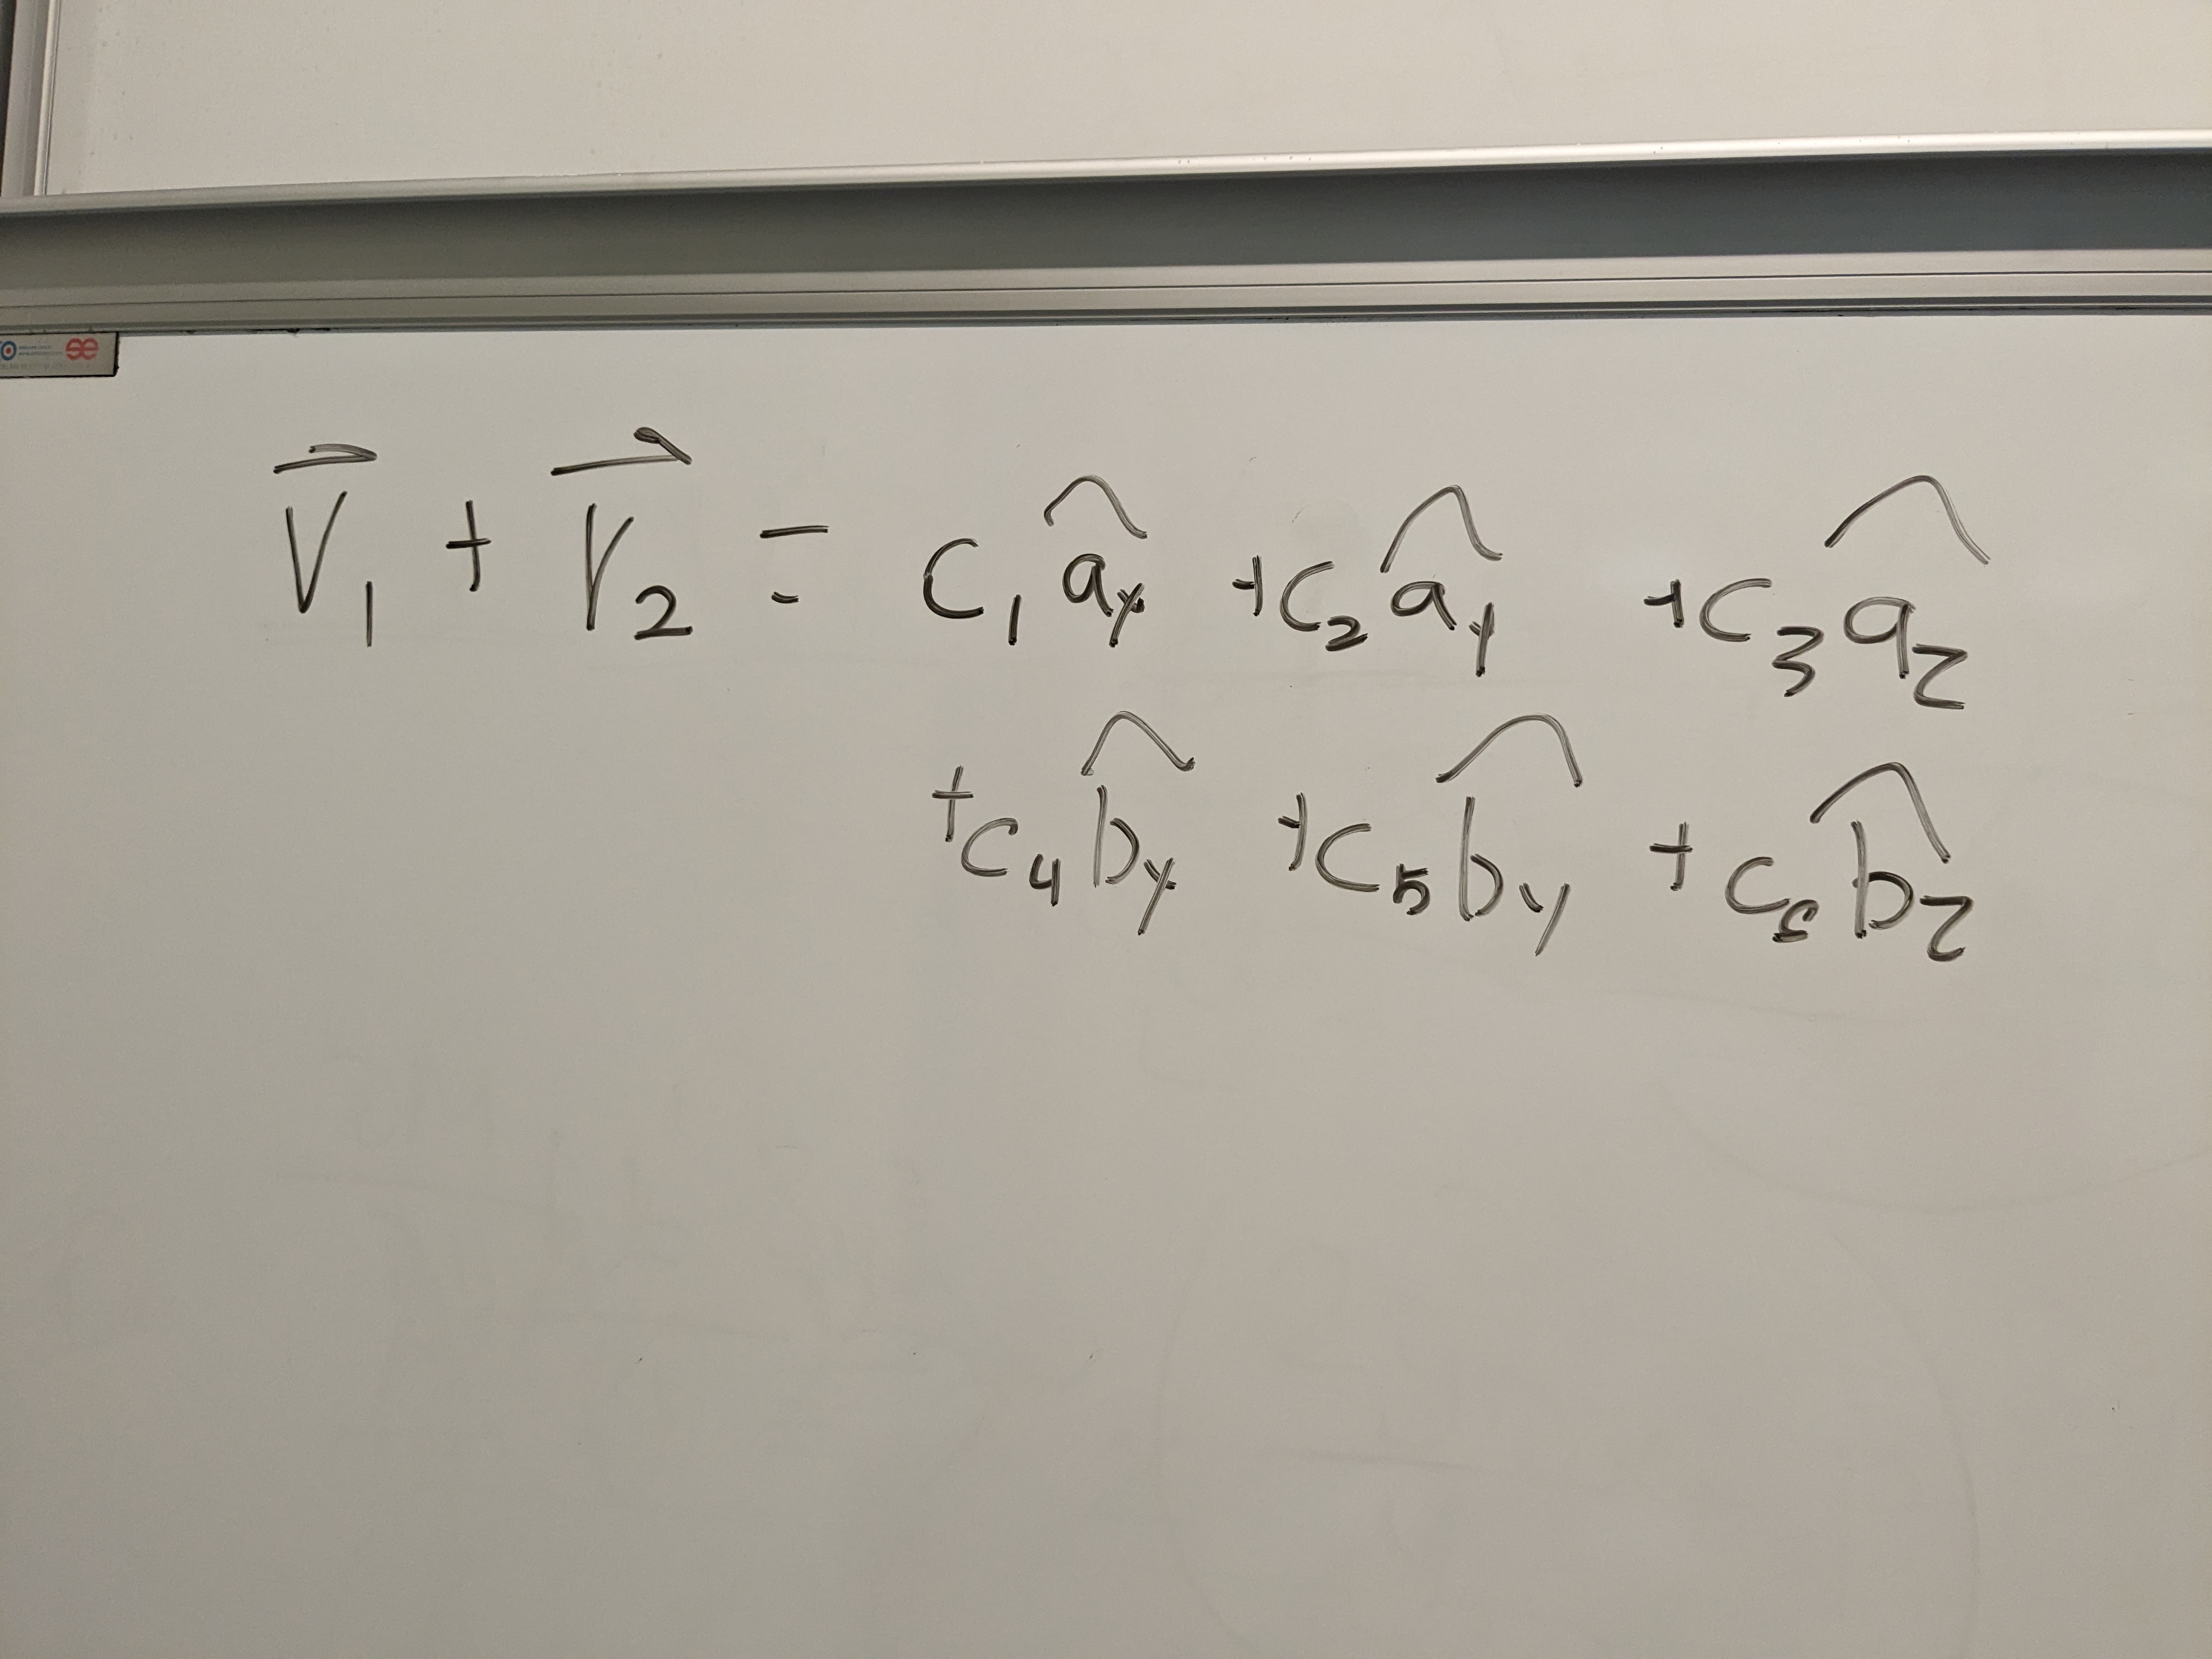 se
V⃗₁ + V⃗₂ = c₁ âₓ + c₂ â_y + c₃ â_z
+ c₄ b̂ₓ + c₅ b̂_y + c₆ b̂_z